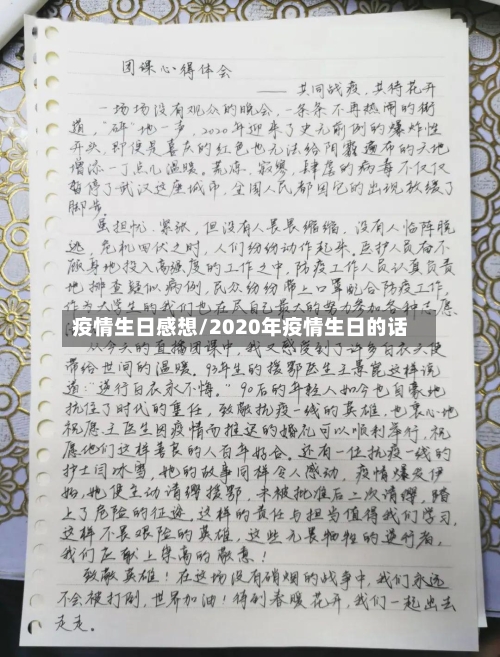 团课心得体会
——共同战疫，共待花开
一场场没有观众的晚会，一条条不再热闹的街
道，“砰”地一声，2020年迎来了史无前例的爆炸性
开头，即便是喜庆的红色也无法给阴霾遍布的大地
增添一丁点儿温暖。荒凉、寂寥，肆虐的病毒不仅仅
暂停了武汉这座城市，全国人民都因它的出现放缓了
脚步。
虽担忧、紧张，但没有人畏畏缩缩，没有人临阵脱
逃，危机四伏之时，人们纷纷动作起来。医护人员奋不
顾身地投入高强度的工作之中，防疫工作人员认真负责
地排查疑似病例，民众纷纷带上口罩配合防疫工作，
作为大学生的我们也在尽自己最大的努力参加各种志愿
疫情生日感想/2020年疫情生日的话
从今天的直播团课中，我又感受到了许多白衣天使
带给世间的温暖。93年生的援鄂医生王慕龍这样说
道：“逆行白衣永不悔。”90后的年轻人如今也自豪地
抗位了时代的重任，致敬抗疫一线的英雄，也衷心地
祝愿王医生因疫情而推迟的婚礼可以顺利举行，祝
愿他们这样善良的人百年好合。还有一位抗疫一线的
护士闫冰雪，她的故事同样令人感动，疫情爆发伊
始，她便主动请缨援鄂，未被批准后二次请缨，踏
上了危险的征途。这样的责任与担当值得我们学习，
这样不畏艰险的英雄，这些无畏牺牲的逆行者，
我们应献上崇高的敬意！
致敬英雄！在这场没有硝烟的战争中，我们永远
不会被打倒，世界加油！待到春暖花开，我们一起出去
走走。